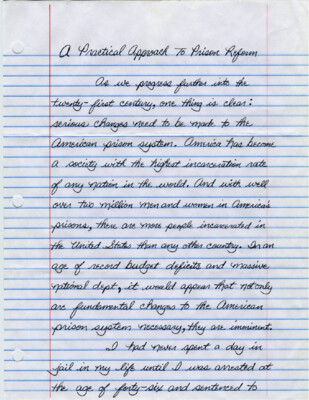 A Practical Approach To Prison Reform
As we progress further into the
twenty-first century, one thing is clear:
serious changes need to be made to the
American prison system. America has become
a society with the highest incarceration rate
of any nation in the world. And with well
over two million men and women in America's
prisons, there are more people incarcerated in
the United States than any other country. In an
age of record budget deficits and massive
national dept, it would appear that not only
are fundamental changes to the American
prison system necessary, they are imminent.
I had never spent a day in
jail in my life until I was arrested at
the age of forty-six and sentenced to